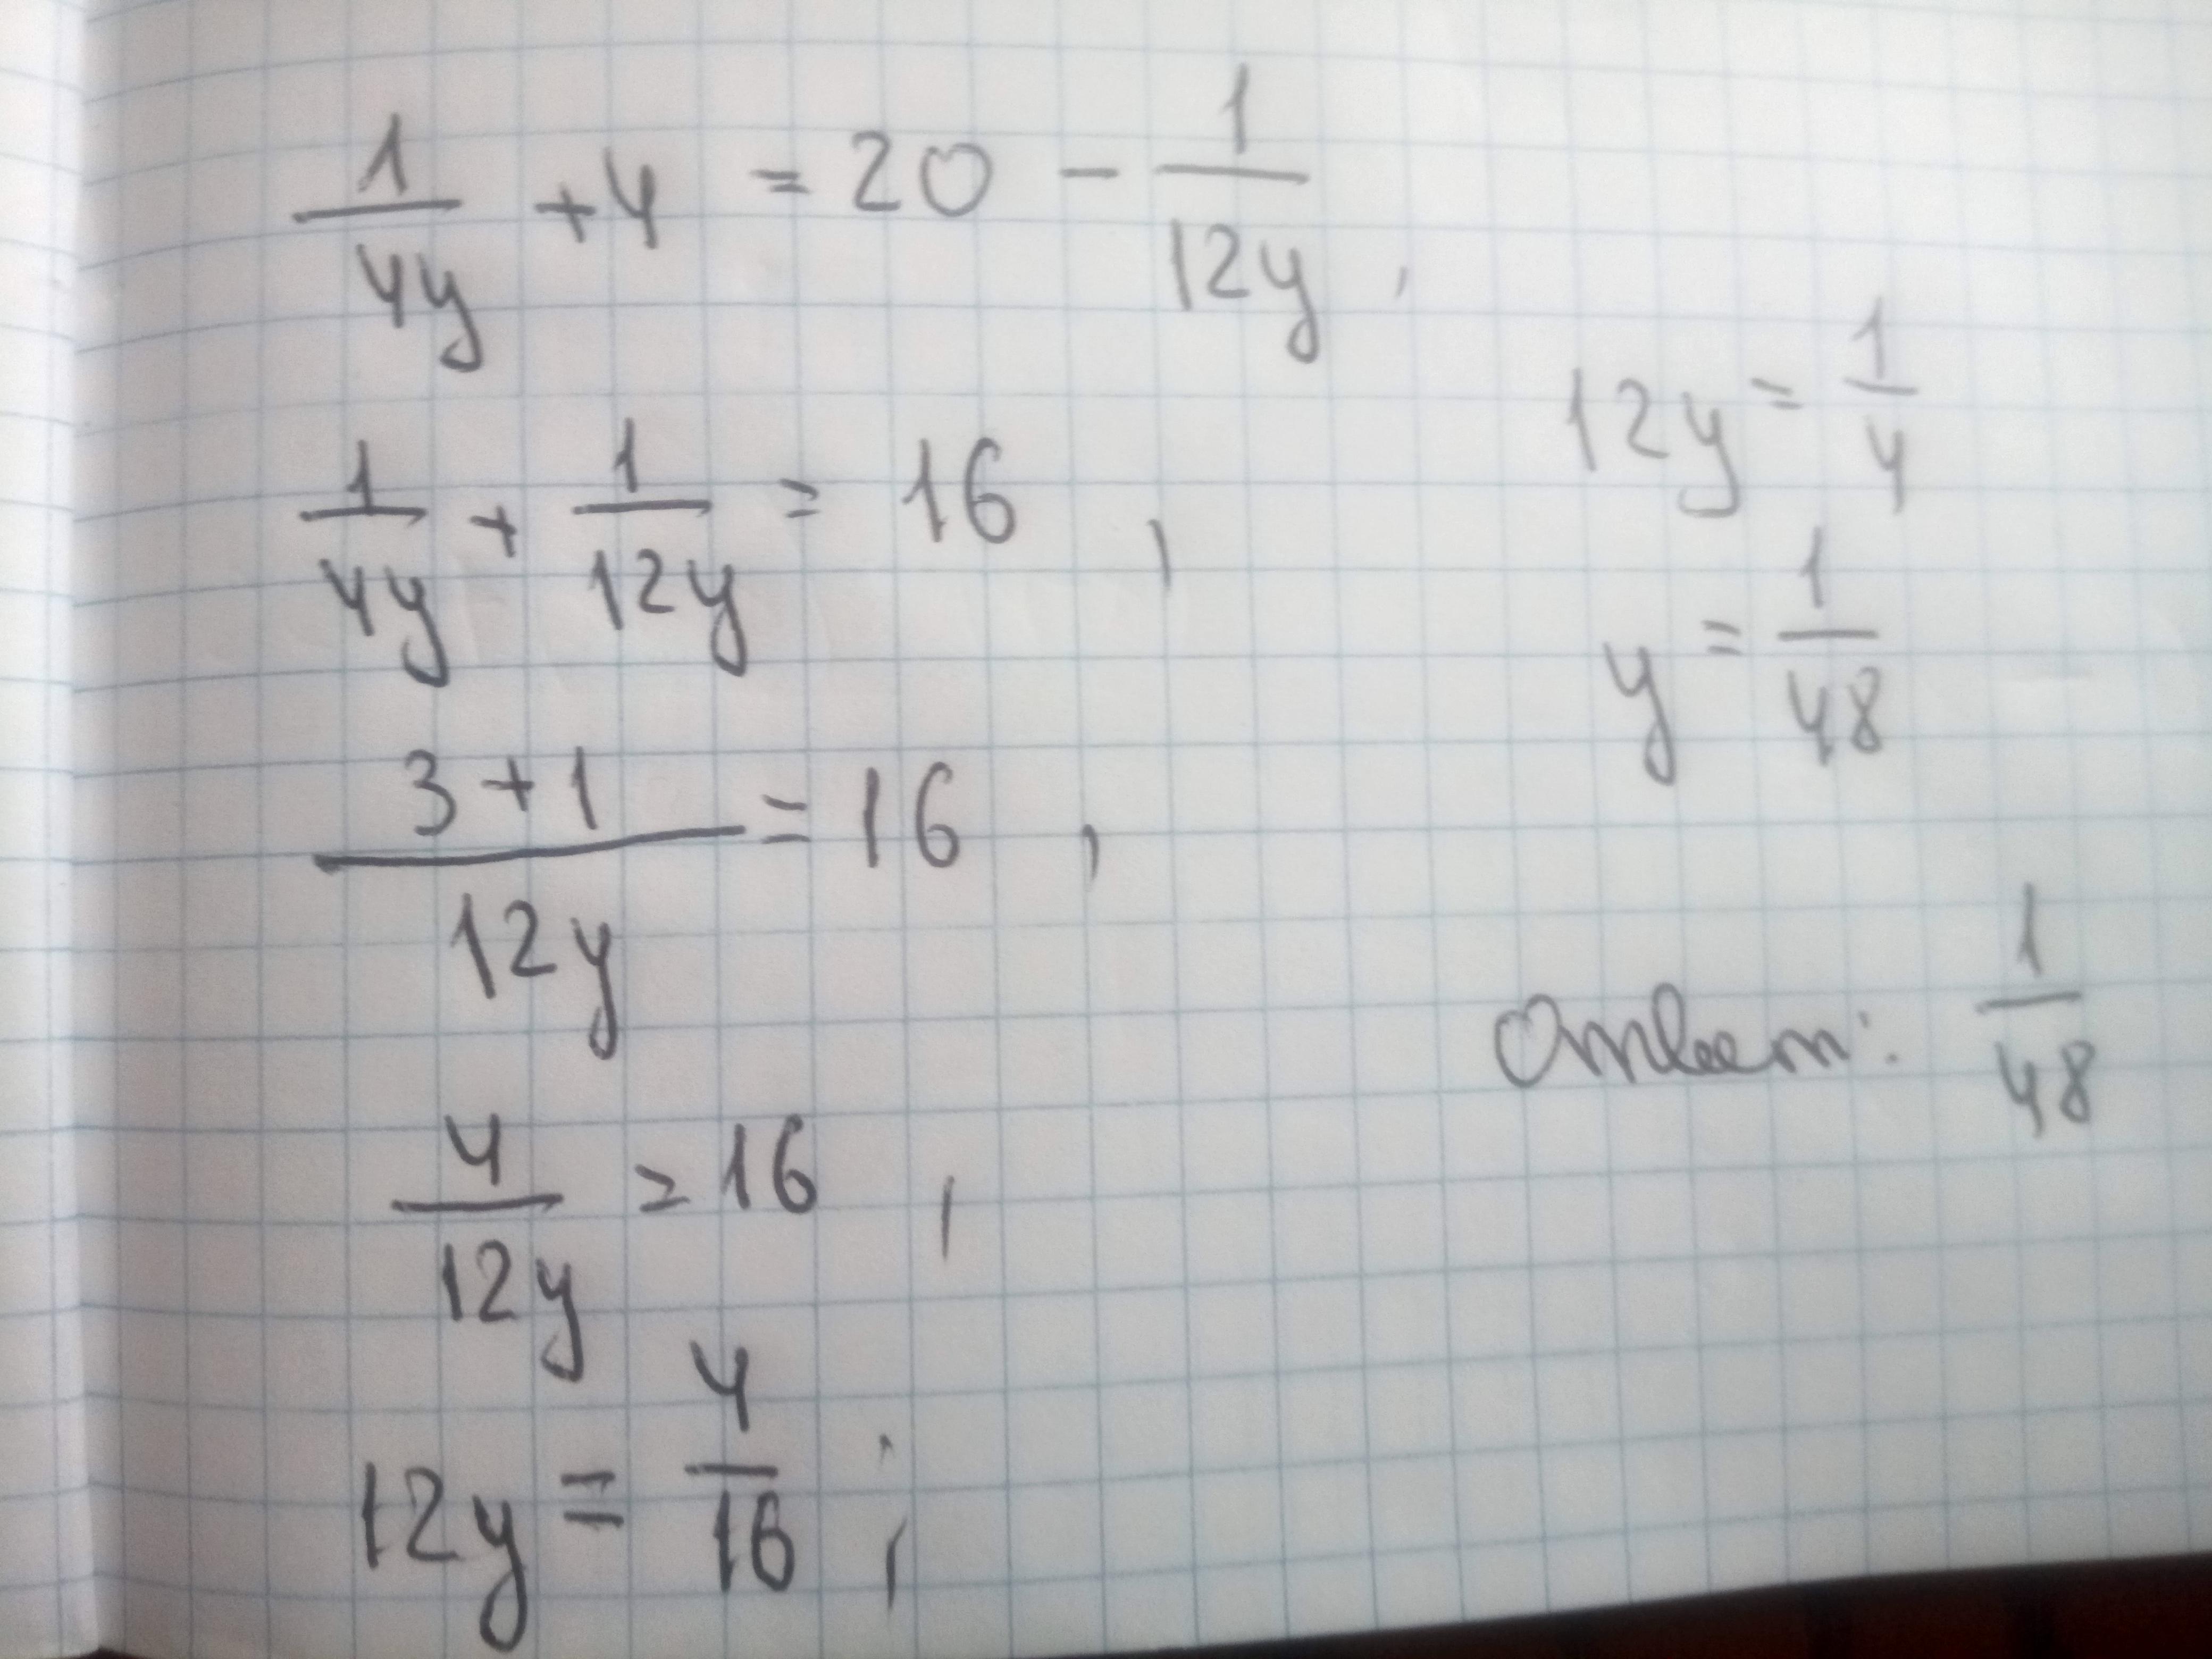 1/4y + 4 = 20 - 1/12y ,
1/4y + 1/12y = 16 ,
3+1/12y = 16 ,
4/12y = 16 ,
12y = 4/16 ;
12y = 1/4
y = 1/48
Ответ: 1/48